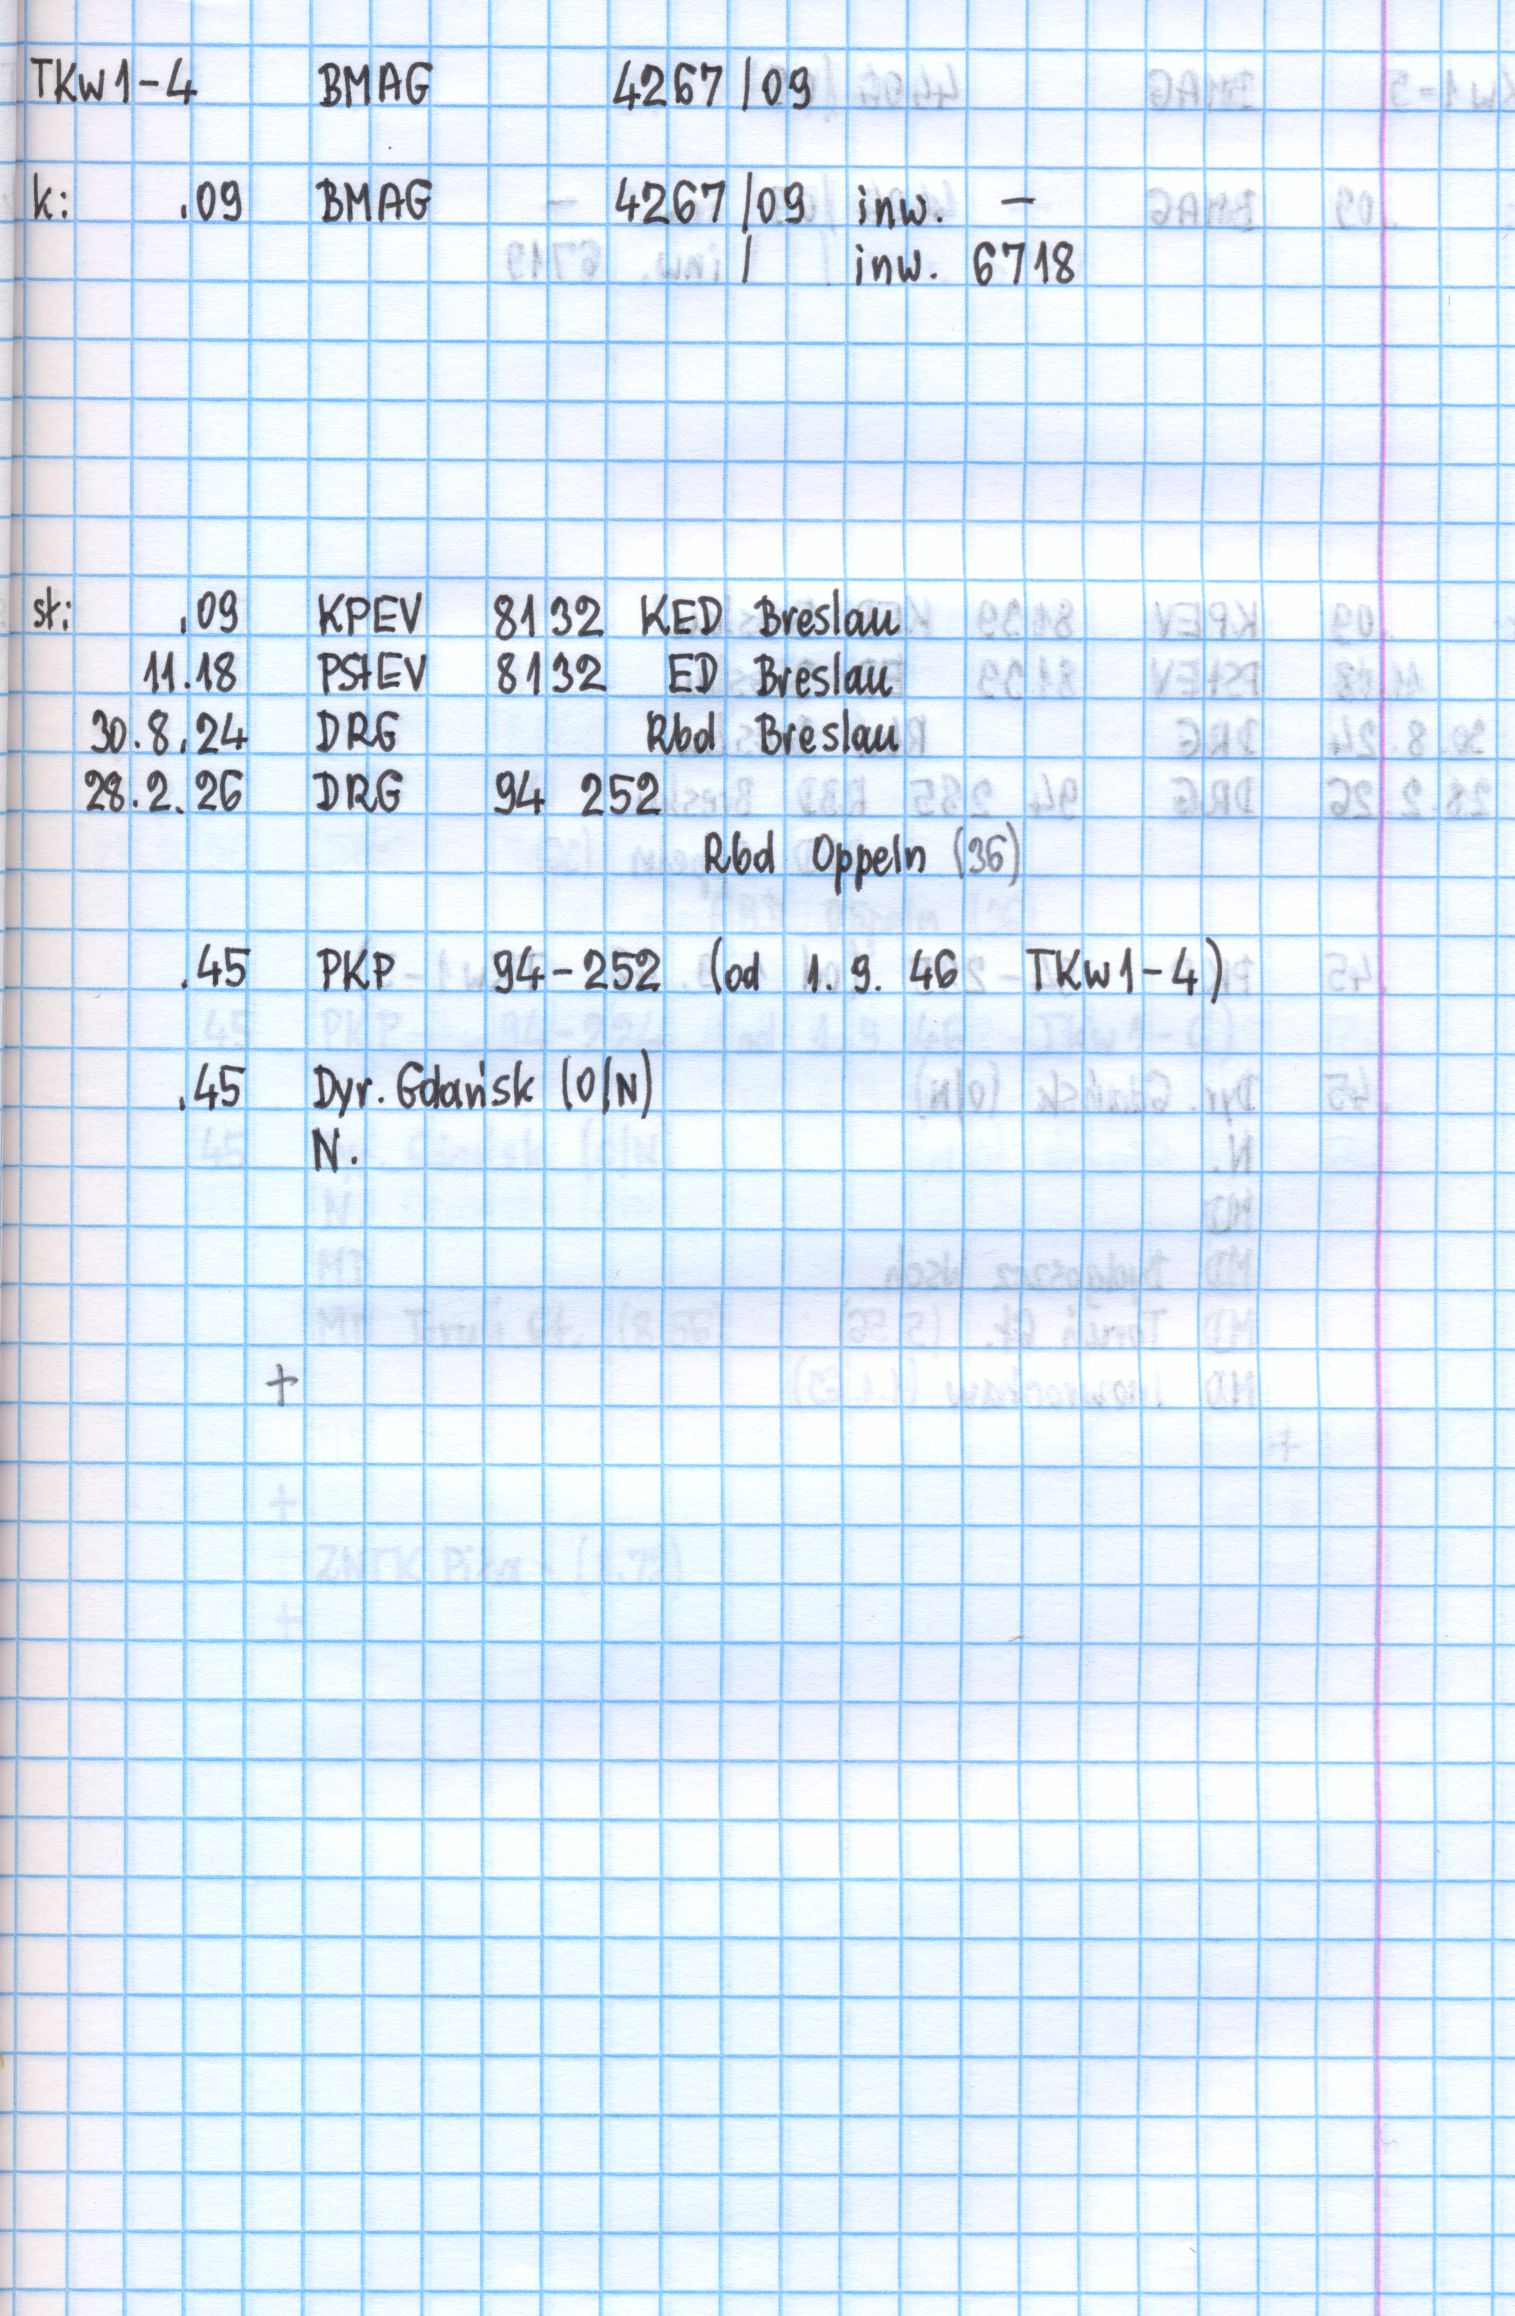 TKw1-4 BMAG 4267/09
k: .09 BMAG 4267/09 inw. -
/ inw. 6718
st: .09 KPEV 8132 KED Breslau
11.18 PStEV 8132 ED Breslau
30.8.24 DRG Rbd Breslau
28.2.26 DRG 94 252
Rbd Oppeln (36)
.45 PKP 94-252 (od 1.9.46 TKw1-4)
.45 Dyr. Gdańsk (O/N)
N.
+